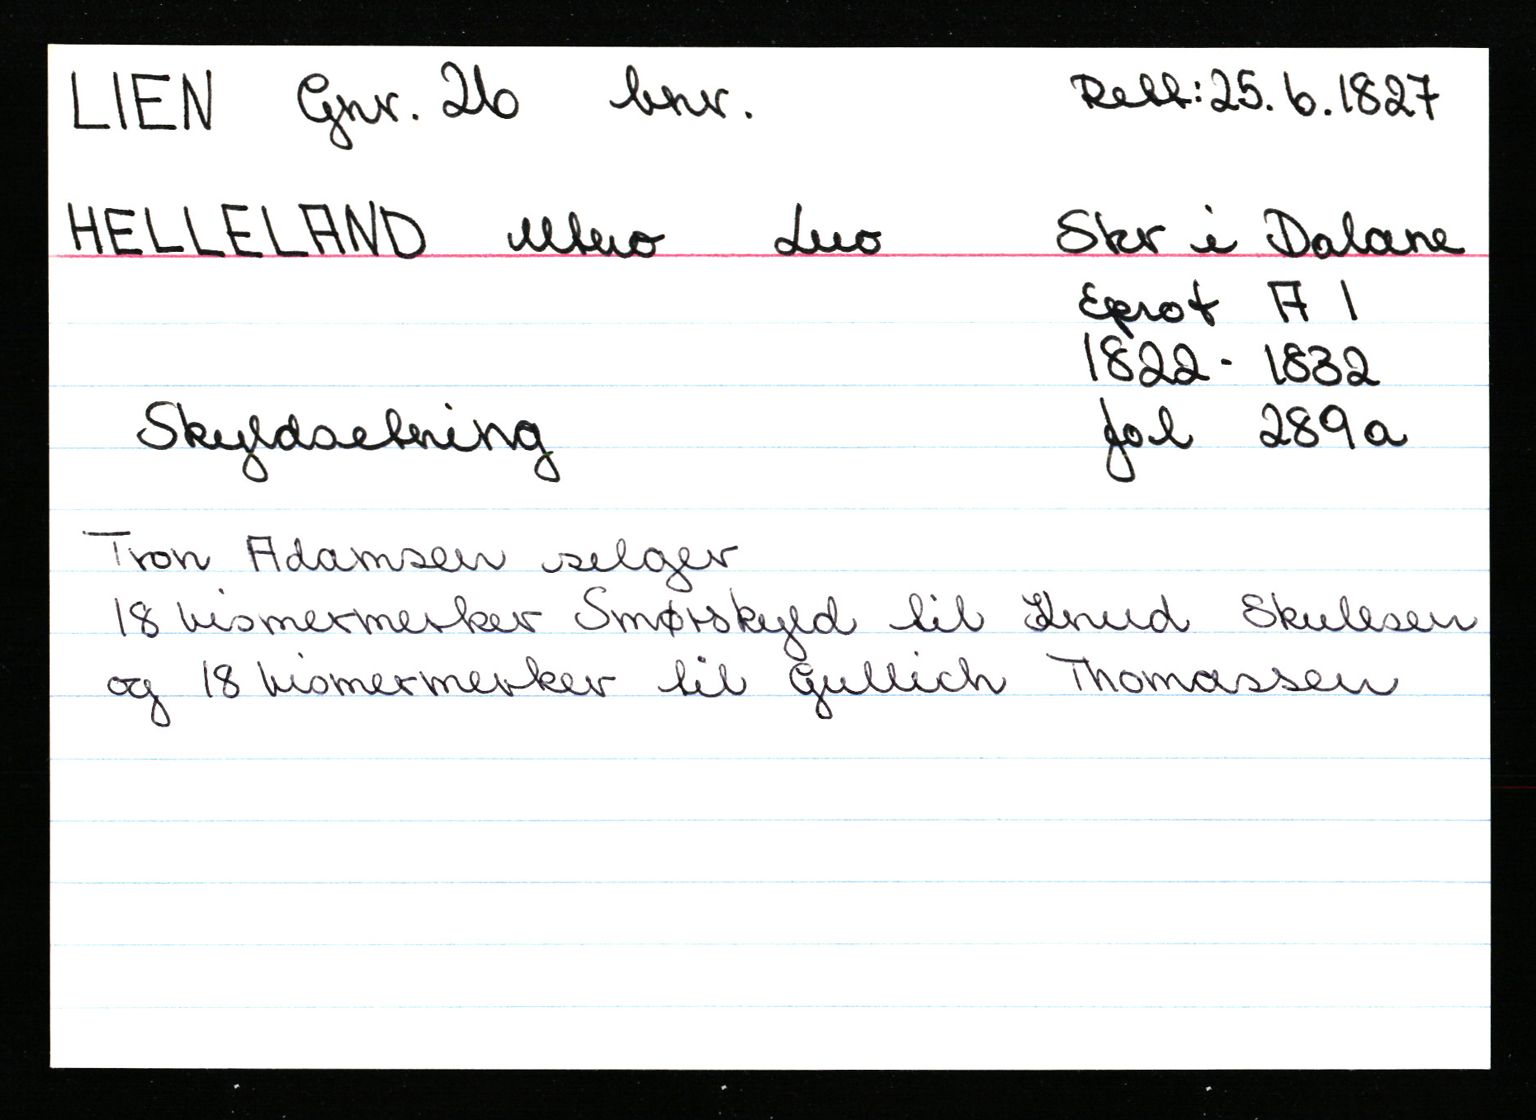 LIEN Gnr. 26 bnr. Rett: 25.6.1827
HELLELAND Mtno Lno Skr i Dalane
Eprot A 1
1822 - 1832
Skyldsetning fol 289a
Tron Adamsen selger
18 bismermerker Smørskyld til Knud Skulesen
og 18 bismermerker til Gullich Thomassen